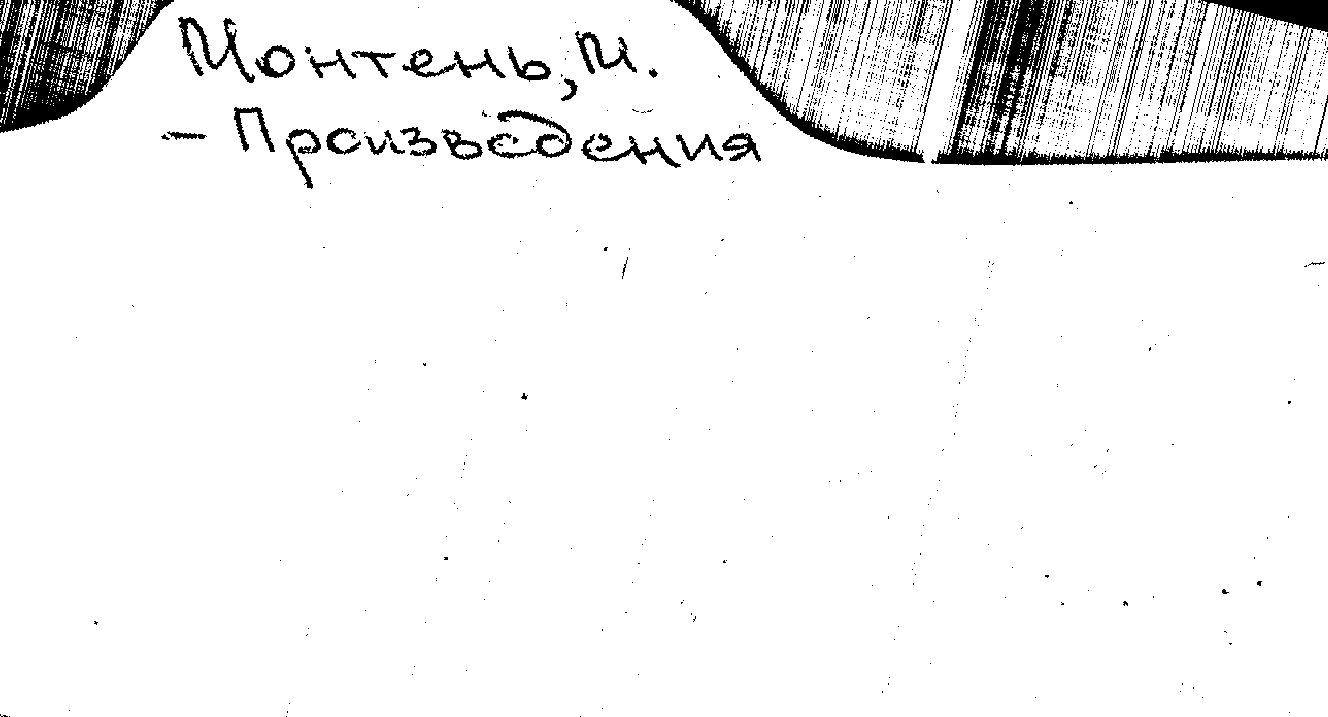 Монтень, М.
- Произведения